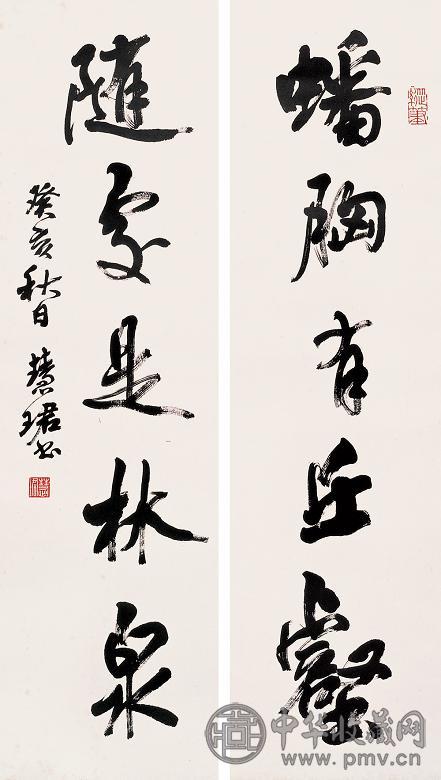 蟠胸有丘壑
随处是林泉
癸亥秋日 慧珺书
中华收藏网
www.pmv.cn